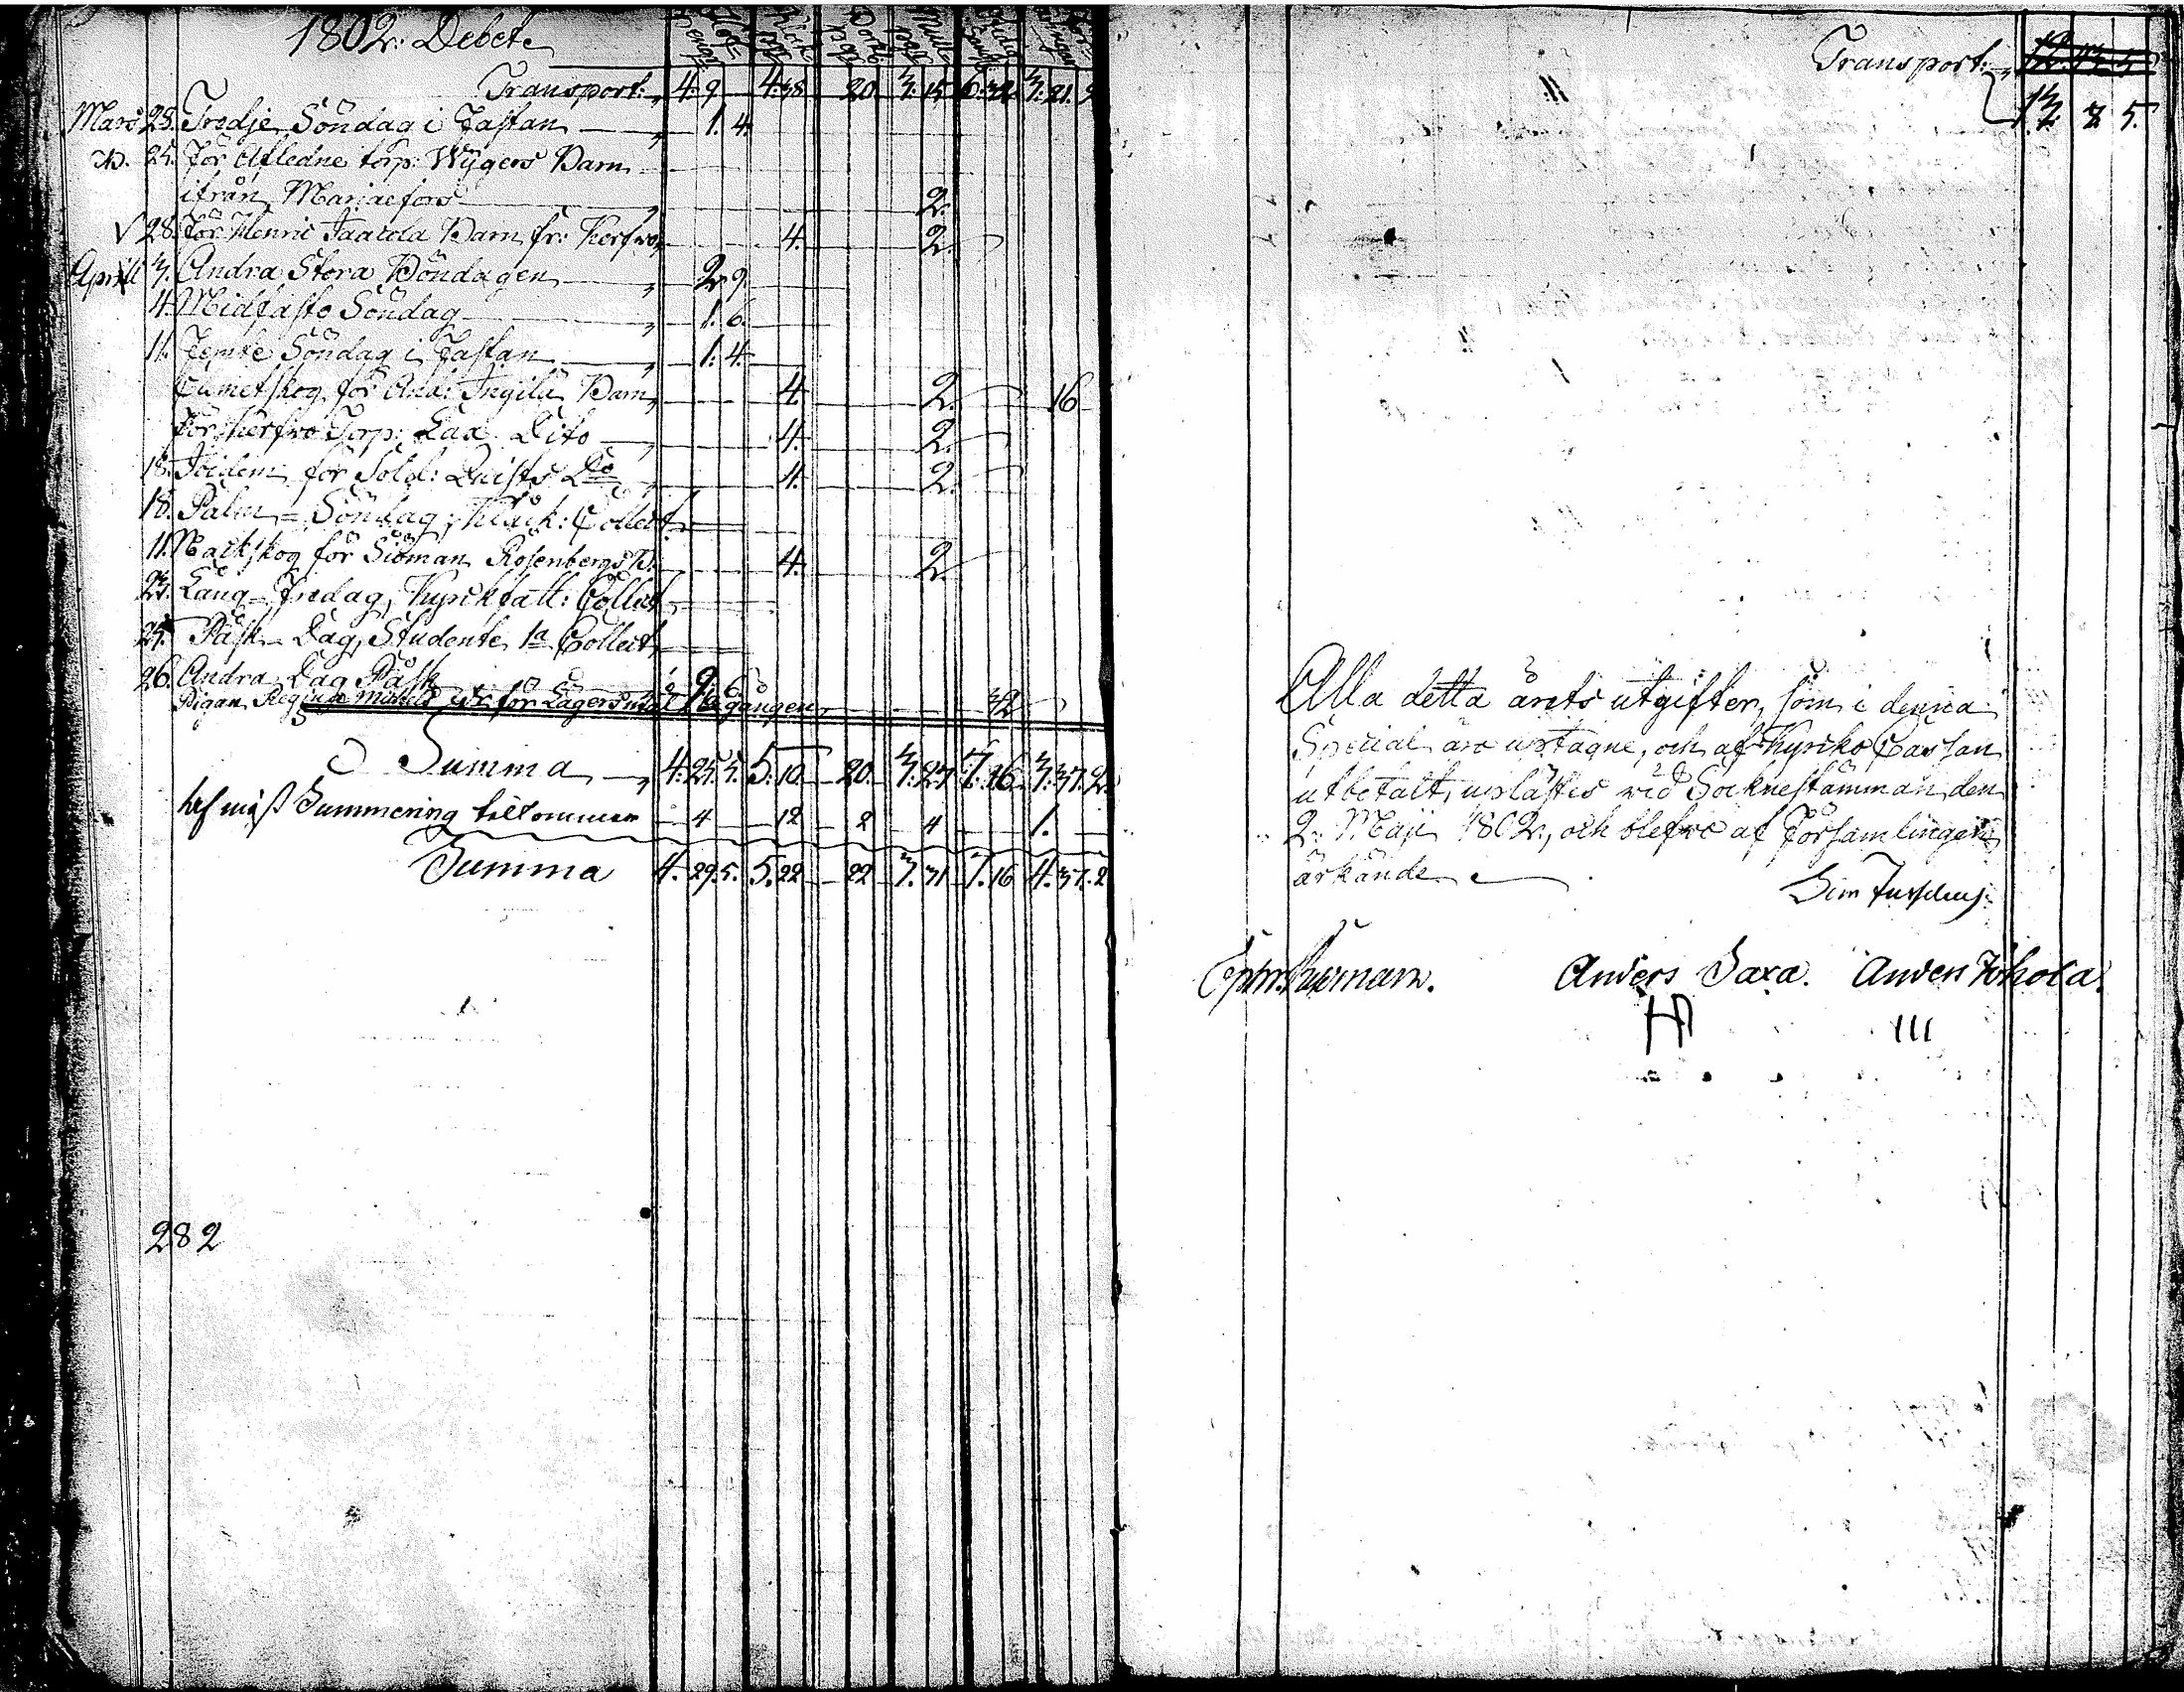 1802. Debet
Transport: 4. 9 4. 38 20. 3. 15 6. 32. 3. 21. 9
Mars 23. Tredje Söndag i Fastan 1. 4.
D. 25. för Afledne torp: Wygers Barn
ifrån Mariaefors 2.
28. För Henric Jaakola Barn fr: Kerfwo 4. 2.
April 3. Andra Stora Böndagen 2. 9.
4. Midfasto Söndag 1. 6.
11. Femte Söndag i Fastan 1. 4.
för And: Ingilä Barn 4. 2. 16
För Kerfwo Torp: Lax Dito 4. 2.
18. Ibidem för Sold: Quists Do 4. 2.
18. Palm-Söndag, Collect
11. Backskog för Sioman Rosenbergs B. 4. 2.
23. Lång-Fredag, Kyrckfatt: Collect
25. Påsk-Dag, Studente 1a Collect
26. Andra Dag Påsk 2. 6.
Pigan Regina för Lägersmål 1a gången 32
Summa 4. 25. 5. 5. 10 20. 3. 27 7. 16 3. 37. 2
Summering tillkommer 4 12 2 4 1.
Summa 4. 29. 5. 5. 22 22 3. 31 7. 16 4. 37. 2
282
Transport:
13 8 5.
Alla detta årets utgifter, som i denna
Special äro uptagne, och af Kyrko Cassan
utbetalt, uplästes wid Socknestämman den
2. Maji 1802, och blefwo af Församlingen
ärkände
Anders Saxa. Anders Johola.
III